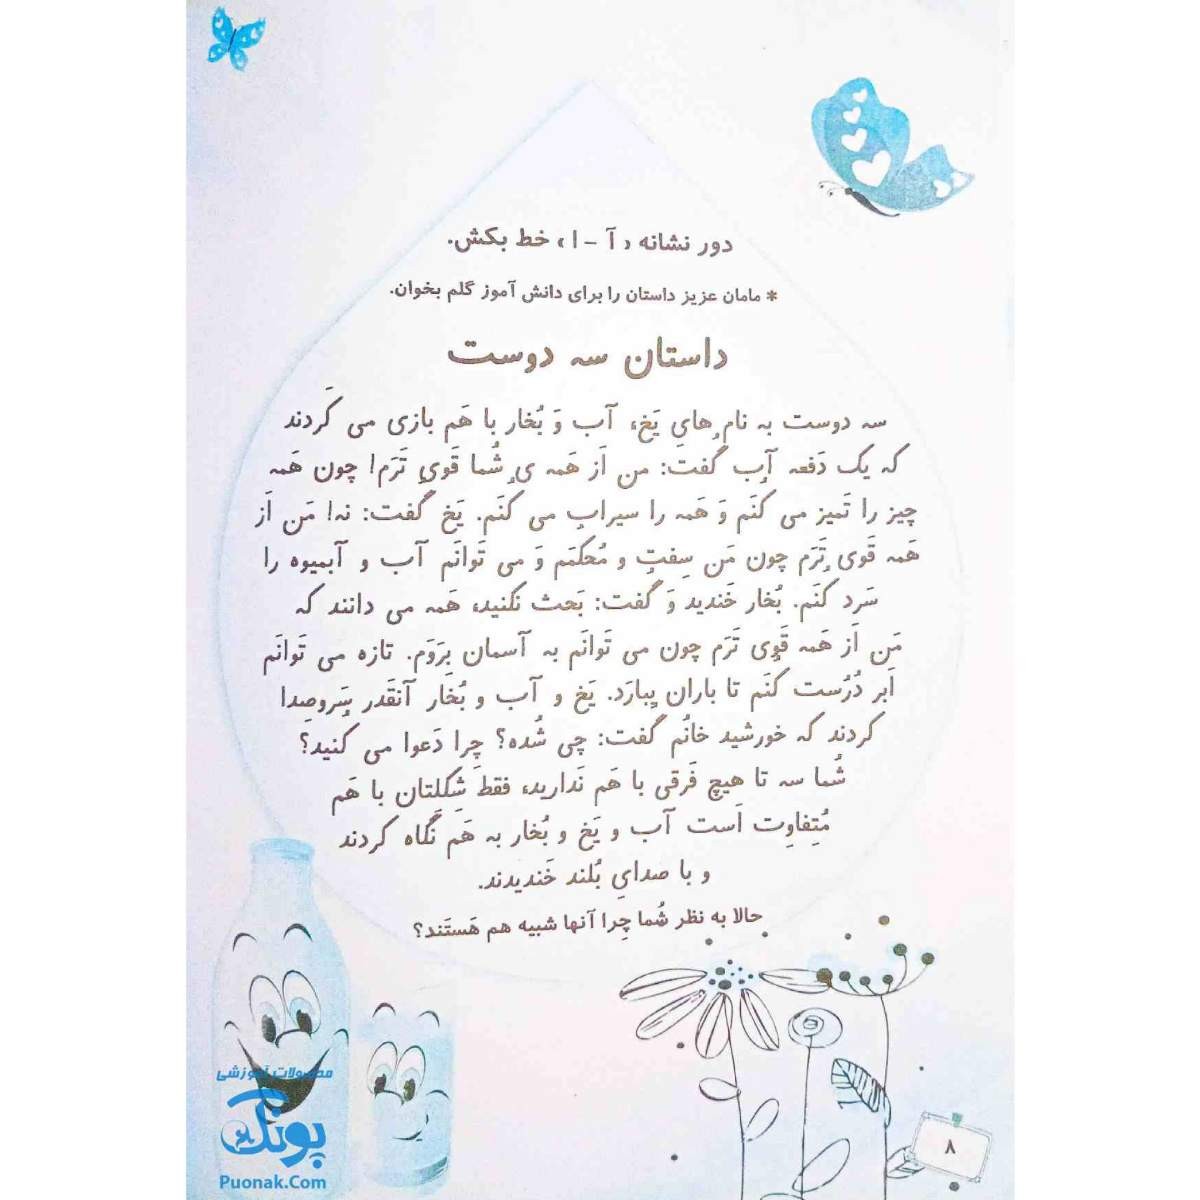 دور نشانه «آ - ا» خط بکش.
* مامان عزیز داستان را برای دانش آموز گلم بخوان.
داستان سه دوست
سه دوست به نام های یَخ، آب وَ بُخار با هَم بازی می کَردند
که یک دَفعه آب گفت: من اَز هَمه ی شُما قَوی تَرَم! چون هَمه
چیز را تَمیز می کنَم وَ هَمه را سیراب می کنَم. یَخ گفت: نه! مَن اَز
هَمه قَوی تَرَم چون مَن سِفت و مُحکمَم وَ می تَوانَم آب و آبمیوه را
سَرد کنَم. بُخار خَندید وَ گفت: بَحث نکنید، هَمه می دانند که
مَن اَز هَمه قَوی تَرَم چون می تَوانَم به آسمان برَوَم. تازه می تَوانَم
اَبر دُرُست کنَم تا باران ببارَد. یَخ و آب و بُخار آنقَدر سَروصِدا
کردند که خورشید خانُم گفت: چی شُده؟ چرا دَعوا می کنید؟
شُما سه تا هیچ فَرقی با هَم نَدارید، فقط شَکلَتان با هَم
مُتِفاوِت اَست آب و یَخ و بُخار به هَم نَگاه کردند
و با صدایِ بُلند خَندیدند.
حالا به نظر شُما چِرا آنها شبیه هم هَستَند؟
محصولات آموزشی
پونک
Puonak.Com
۸